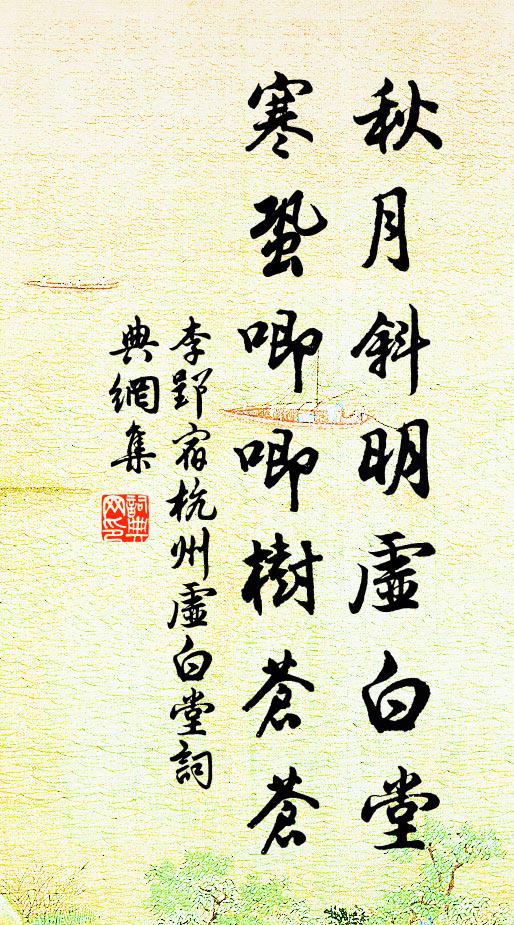 秋月斜明虛白堂
寒蛩唧唧樹蒼蒼
李郢宿杭州虛白堂詞
典網集
詞典網印